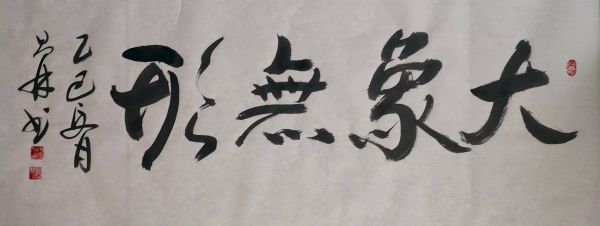 大象無形
乙巳夏月
昌林书